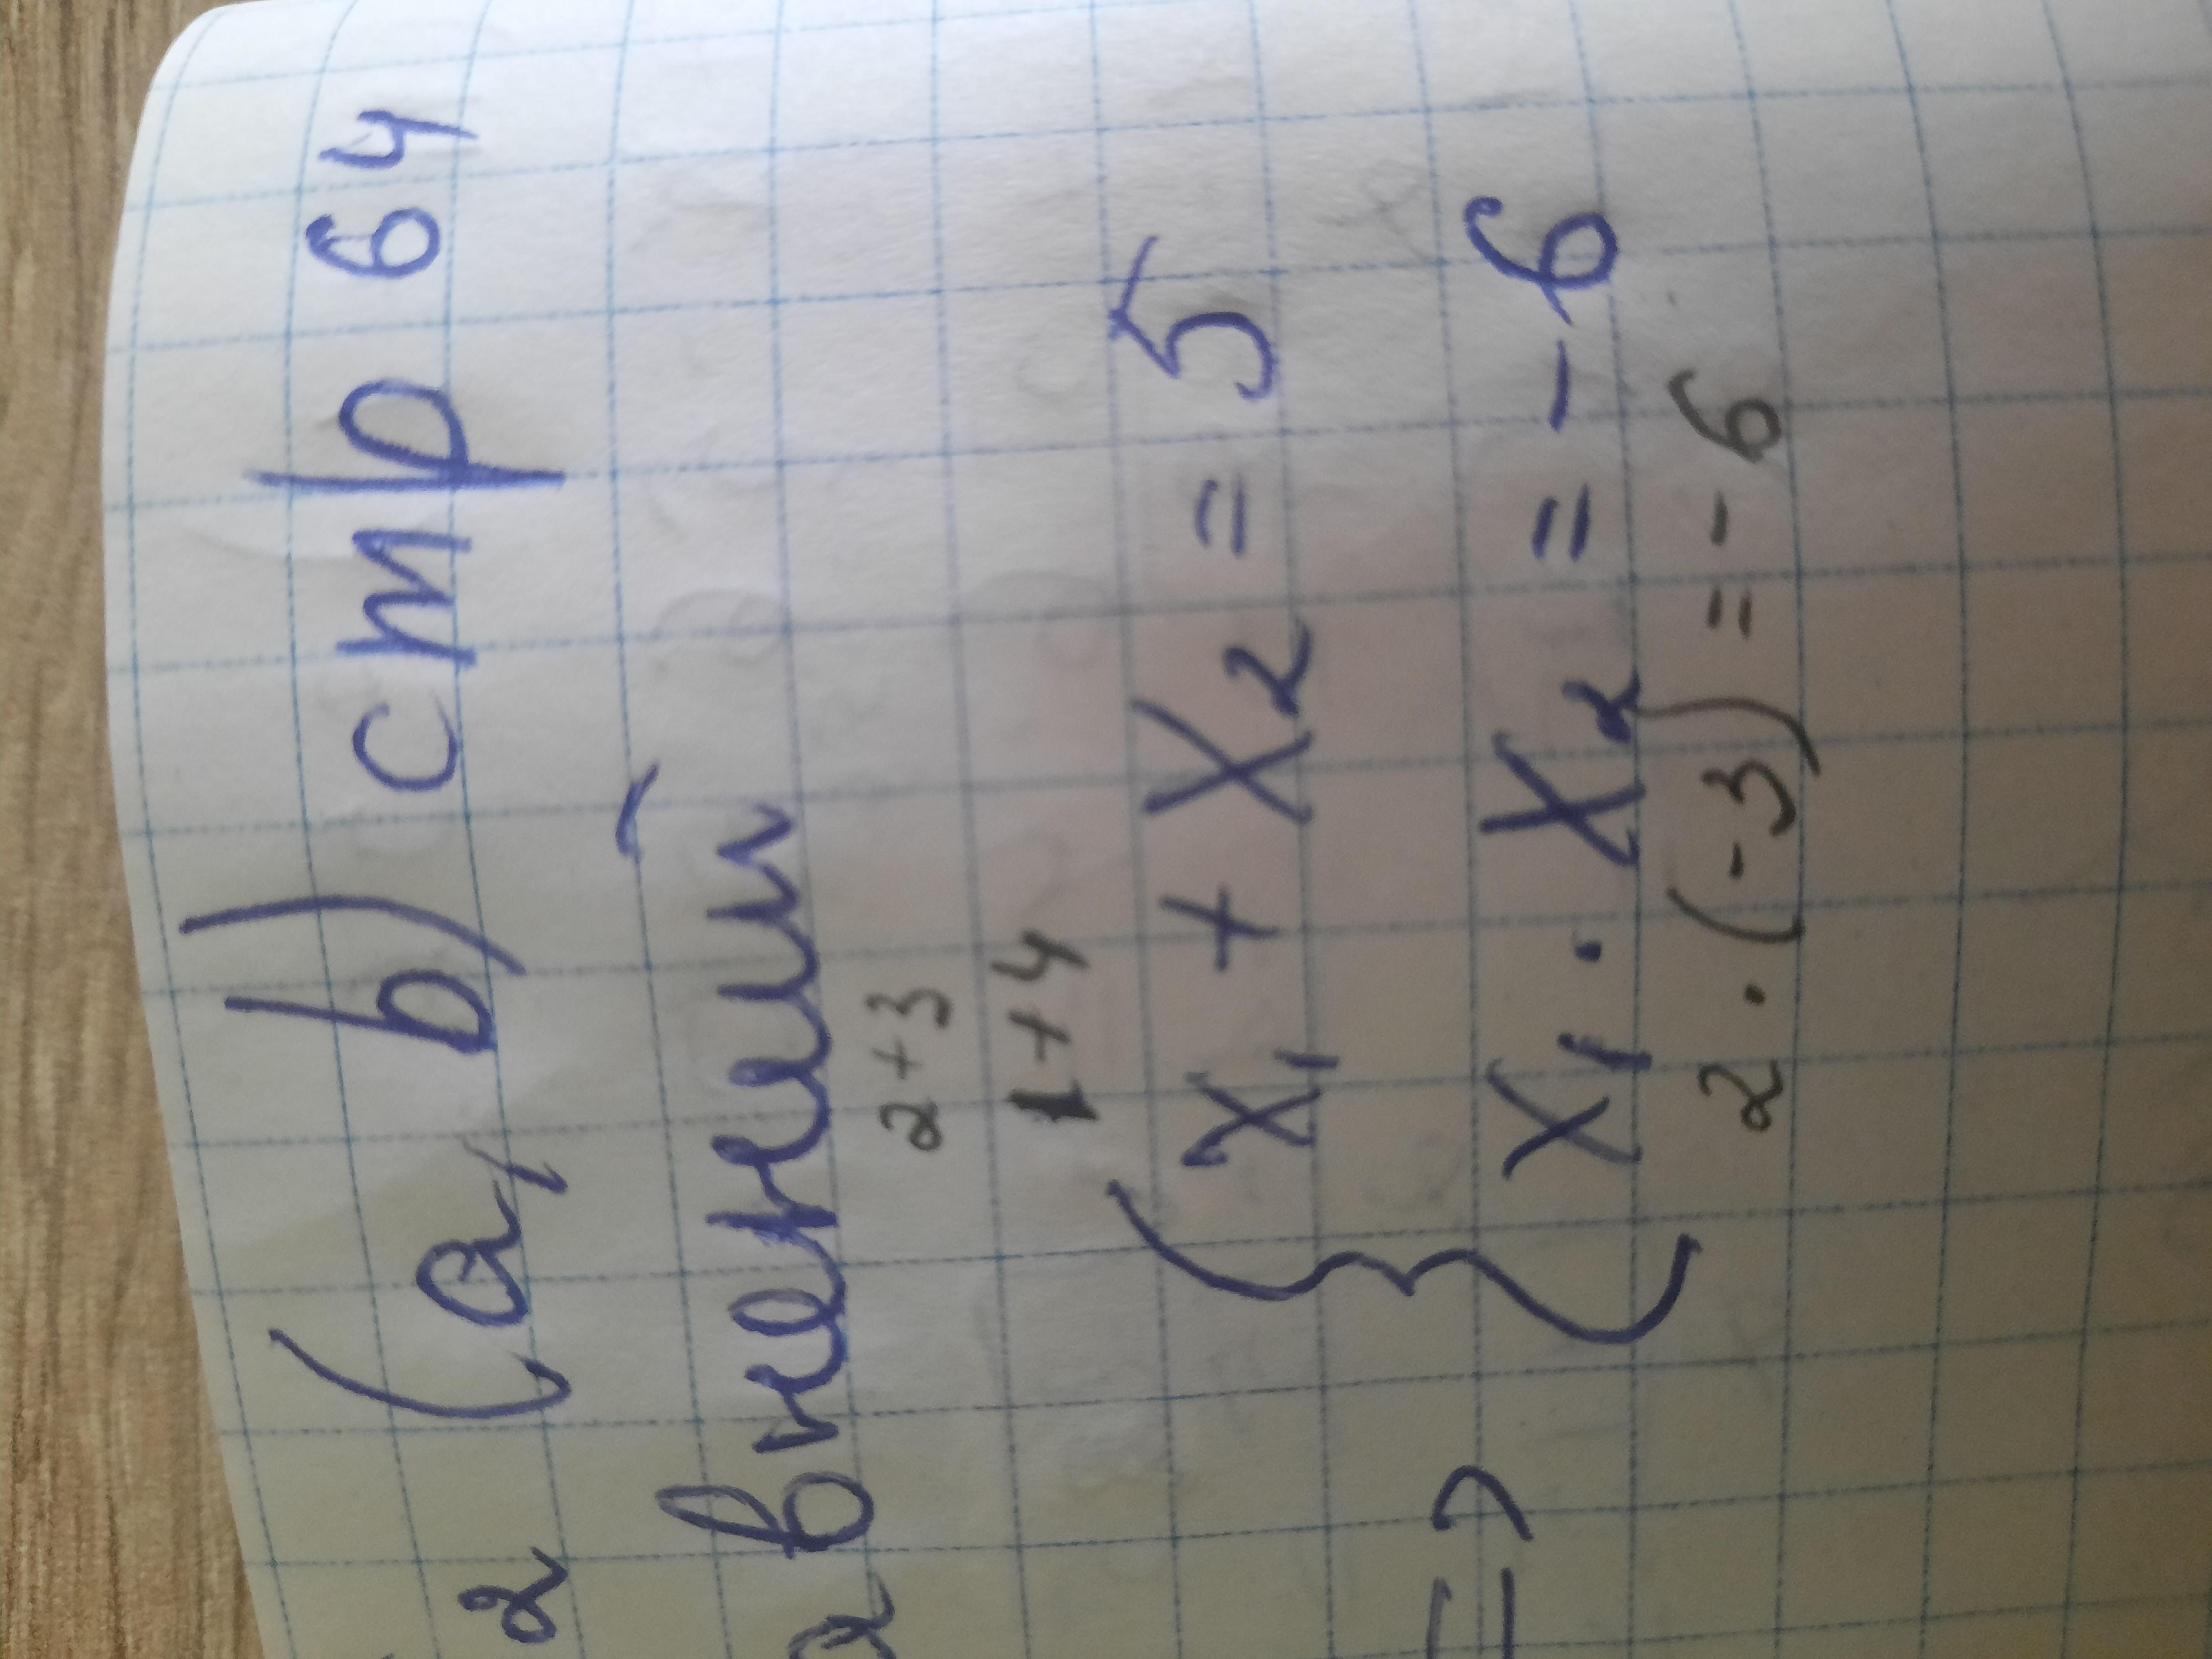 2 (a, b) стр 64
авнений
2+3
1+4
x₁ + x₂ = 5
=> { x₁ · x₂ = -6
2 · (-3) = -6